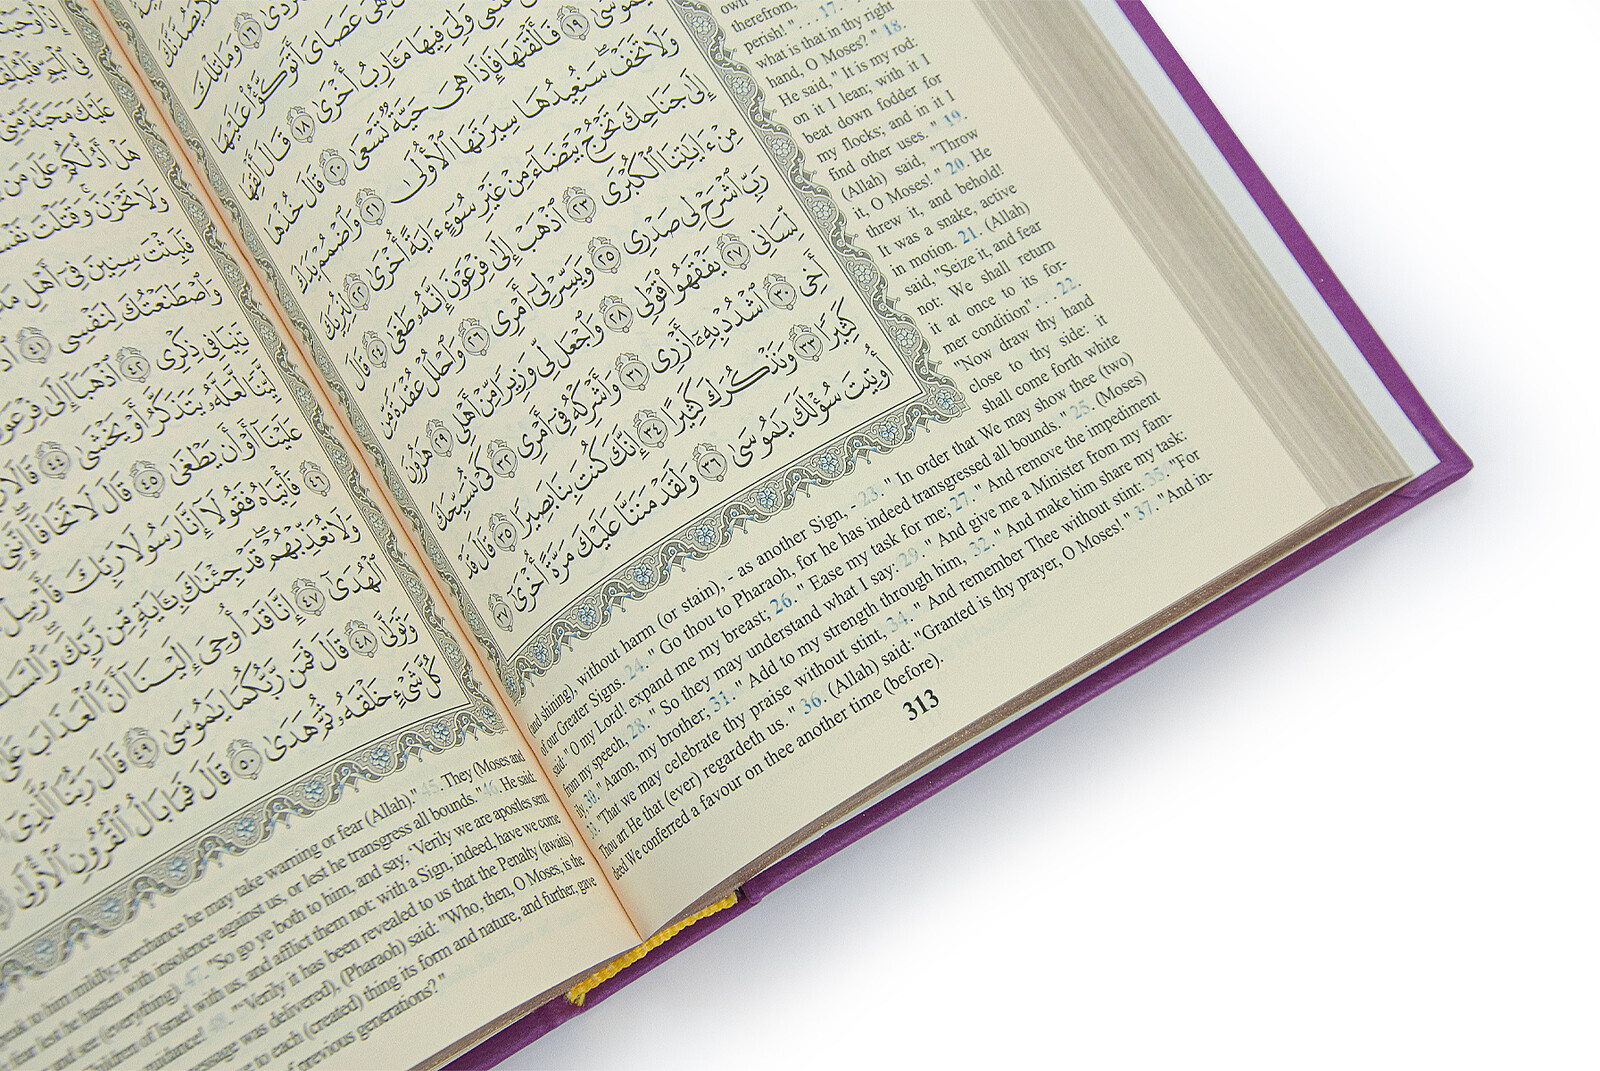 وَمَا تِلْكَ
هِيَ عَصَايَ أَتَوَكَّؤُا عَلَيْهَا
غَنَمِي وَلِيَ فِيهَا مَـَٔارِبُ أُخْرَىٰ ١٨ قَالَ أَلْقِهَا
يَٰمُوسَىٰ ١٩ فَأَلْقَىٰهَا فَإِذَا هِيَ حَيَّةٌ تَسْعَىٰ ٢٠ قَالَ خُذْهَا
وَلَا تَخَفْ سَنُعِيدُهَا سِيرَتَهَا ٱلْأُولَىٰ ٢١ وَٱضْمُمْ يَدَكَ
إِلَىٰ جَنَاحِكَ تَخْرُجْ بَيْضَآءَ مِنْ غَيْرِ سُوٓءٍ ءَايَةً أُخْرَىٰ ٢٢ لِنُرِيَكَ
مِنْ ءَايَٰتِنَا ٱلْكُبْرَى ٢٣ ٱذْهَبْ إِلَىٰ فِرْعَوْنَ إِنَّهُۥ طَغَىٰ ٢٤ قَالَ
رَبِّ ٱشْرَحْ لِي صَدْرِي ٢٥ وَيَسِّرْ لِيٓ أَمْرِي ٢٦ وَٱحْلُلْ عُقْدَةً مِّن
لِّسَانِي ٢٧ يَفْقَهُوا۟ قَوْلِي ٢٨ وَٱجْعَل لِّي وَزِيرًا مِّنْ أَهْلِي ٢٩ هَٰرُونَ
أَخِي ٣٠ ٱشْدُدْ بِهِۦٓ أَزْرِي ٣١ وَأَشْرِكْهُ فِيٓ أَمْرِي ٣٢ كَيْ نُسَبِّحَكَ
كَثِيرًا ٣٣ وَنَذْكُرَكَ كَثِيرًا ٣٤ إِنَّكَ كُنتَ بِنَا بَصِيرًا ٣٥ قَالَ قَدْ
أُوتِيتَ سُؤْلَكَ يَٰمُوسَىٰ ٣٦ وَلَقَدْ مَنَنَّا عَلَيْكَ مَرَّةً أُخْرَىٰ ٣٧
own
therefrom,
perish!". . . 17.
what is that in thy right
hand, O Moses?" 18.
He said, " It is my rod:
on it I lean; with it I
beat down fodder for
my flocks; and in it I
find other uses. " 19.
(Allah) said, "Throw
it, O Moses!" 20. He
threw it, and behold!
It was a snake, active
in motion. 21. (Allah)
said, "Seize it, and fear
not: We shall return
it at once to its for-
mer condition". . . 22.
"Now draw thy hand
close to thy side: it
shall come forth white
(and shining), without harm (or stain), - as another Sign, - 23. " In order that We may show thee (two)
of our Greater Signs. 24. " Go thou to Pharaoh, for he has indeed transgressed all bounds. " 25. (Moses)
said: "O my Lord! expand me my breast; 26. " Ease my task for me; 27. " And remove the impediment
from my speech, 28. " So they may understand what I say: 29. " And give me a Minister from my fam-
ily, 30. " Aaron, my brother; 31. " Add to my strength through him, 32. " And make him share my task:
33. "That we may celebrate thy praise without stint, 34. " And remember Thee without stint: 35. "For
Thou art He that (ever) regardeth us. " 36. (Allah) said: "Granted is thy prayer, O Moses! " 37. "And in-
deed We conferred a favour on thee another time (before).
313
عَلَيْكَ مَحَبَّةً مِّنِّي
هَلْ أَدُلُّكُمْ عَلَىٰ مَن
وَلَا تَحْزَنَ وَقَتَلْتَ نَفْسًا
فَلَبِثْتَ سِنِينَ فِيٓ أَهْلِ
وَٱصْطَنَعْتُكَ لِنَفْسِي ٤١
تَنِيَا فِي ذِكْرِي ٤٢ ٱذْهَبَآ إِلَىٰ فِرْعَوْنَ
لَّيِّنًا لَّعَلَّهُۥ يَتَذَكَّرُ أَوْ يَخْشَىٰ ٤٤ قَالَا
عَلَيْنَآ أَوْ أَن يَطْغَىٰ ٤٥ قَالَ لَا تَخَافَآ إِنَّنِي
٤٦ فَأْتِيَاهُ فَقُولَآ إِنَّا رَسُولَا رَبِّكَ فَأَرْسِلْ
وَلَا تُعَذِّبْهُمْ قَدْ جِئْنَٰكَ بِـَٔايَةٍ مِّن رَّبِّكَ وَٱلسَّلَٰمُ
ٱلْهُدَىٰٓ ٤٧ إِنَّا قَدْ أُوحِيَ إِلَيْنَآ أَنَّ ٱلْعَذَابَ عَلَىٰ
وَتَوَلَّىٰ ٤٨ قَالَ فَمَن رَّبُّكُمَا يَٰمُوسَىٰ ٤٩ قَالَ رَبُّنَا ٱلَّذِيٓ
كُلَّ شَيْءٍ خَلْقَهُۥ ثُمَّ هَدَىٰ ٥٠ قَالَ فَمَا بَالُ ٱلْقُرُونِ ٱلْأُولَىٰ
speak to him mildly; perchance he may take warning or fear (Allah)." 45. They (Moses and
fear lest he hasten with insolence against us, or lest he transgress all bounds. "46. He said:
and see (everything). 47. "So go ye both to him, and say, 'Verily we are apostles sent
Children of Israel with us, and afflict them not: with a Sign, indeed, have we come
guidance! 48. "'Verily it has been revealed to us that the Penalty (awaits)
message was delivered), (Pharaoh) said: "Who, then, O Moses, is the
to each (created) thing its form and nature, and further, gave
of previous generations? "